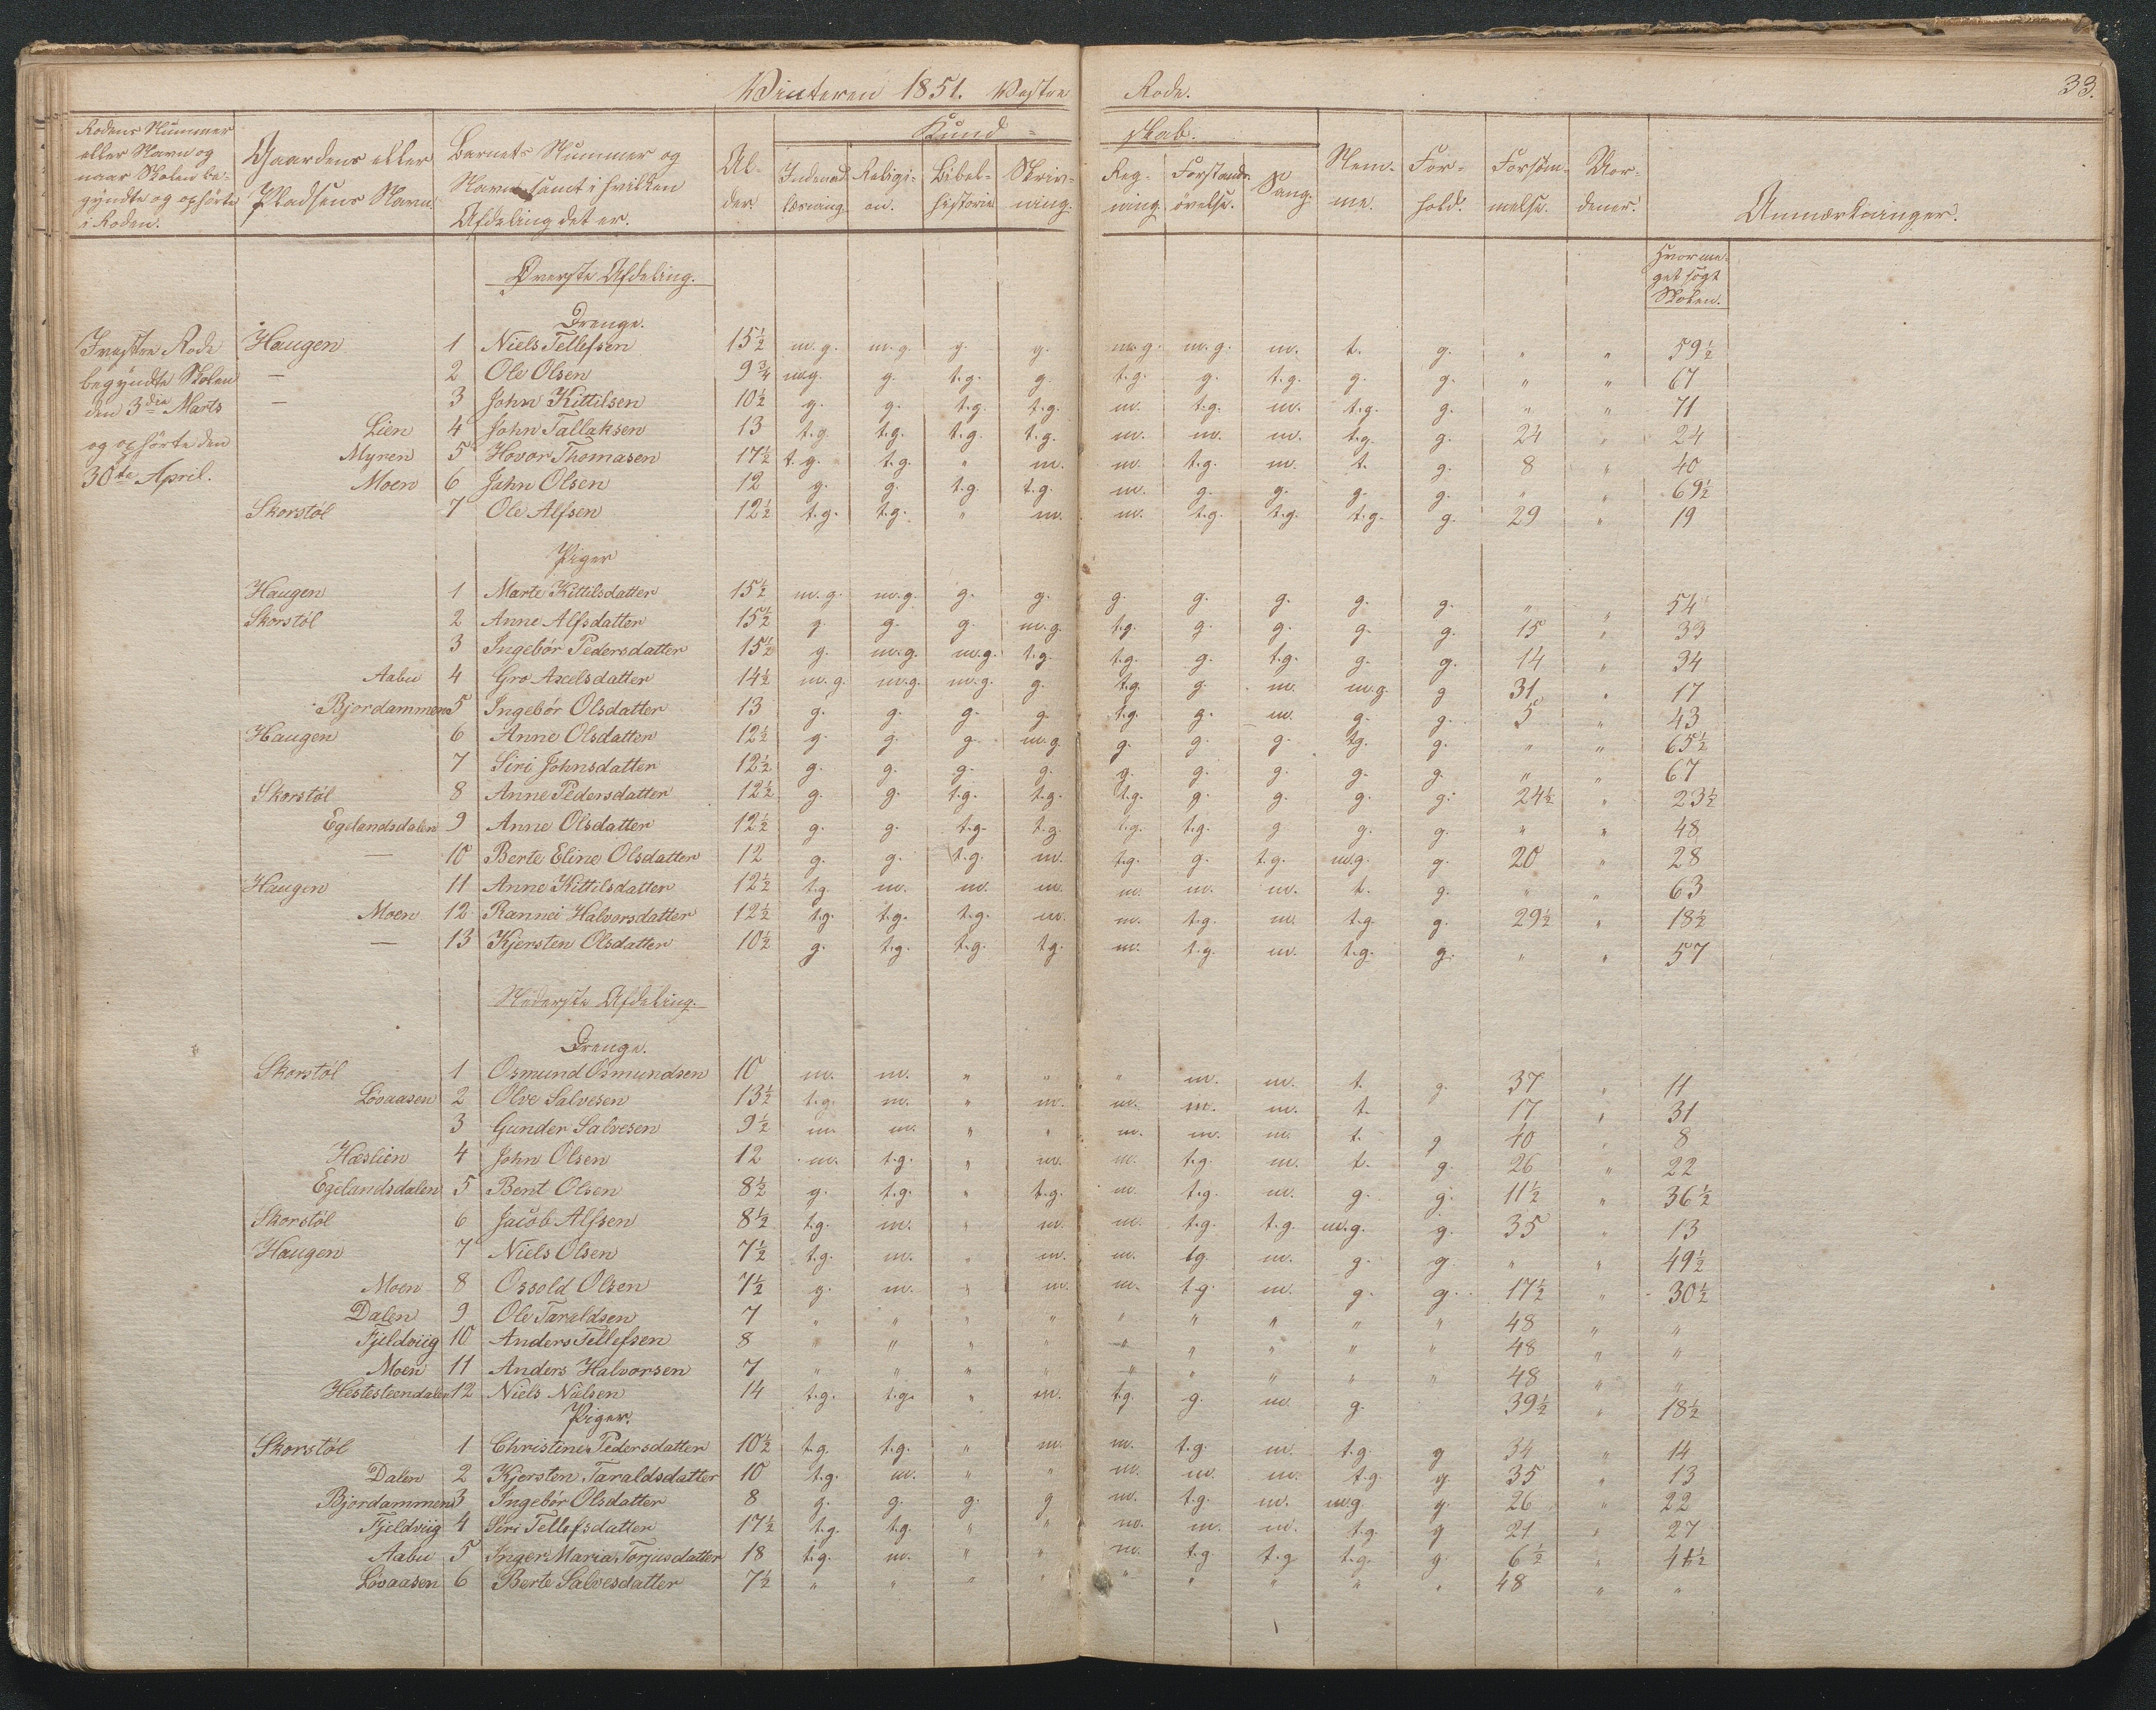 Vinteren 1851. Vestre Rode. 33.
Rodens Nummer eller Navn og naar Skolen begyndte og ophørte i Roden. | Gaardens eller Pladsens Navn. | Barnets Nummer og Navn samt i hvilken Afdeling det er. | Alder. | Kundskab. | Nemme. | Forhold. | Forsømmelse. | | Anmærkninger.
Indenadlæsning. | Religion. | Bibelhistorie | Skrivning. | Regning. | Forstandsøvelse. | Sang.
Øverste Afdeling. | Hvormeget søgt Skolen.
Drenge.
I vestre Rode begyndte Skolen den 3die Marts og ophørte den 30te April.
Haugen 1 Niels Tellefsen 15½ m.g. m.g. g. g. m.g. m.g. m. t. g. " " 59½
— 2 Ole Olsen 9¾ m.g. g. t.g. g. t.g. g. t.g. g. g. " " 67
— 3 John Kittilsen 10½ g. g. t.g. t.g. m. t.g. m. t.g. g. " " 71
Lien 4 John Tallaksen 13 t.g. t.g. t.g. t.g. m. m. m. t.g. g. 24 " 24
Myren 5 Hovor Thomasen 17½ t.g. t.g. " m. m. t.g. m. t. g. 8 " 40
Moen 6 John Olsen 12 g. g. t.g. t.g. m. g. g. g. g. " " 69½
Skorstøl 7 Ole Alfsen 12½ t.g. t.g. " m. m. t.g. t.g. t.g. g. 29 " 19
Piger
Haugen 1 Marte Kittilsdatter 15½ m.g. m.g. g. g. g. g. g. g. g. " " 54
Skorstøl 2 Anne Alfsdatter 15½ g. g. g. m.g. t.g. g. g. g. g. 15 " 33
3 Ingebør Pedersdatter 15½ g. m.g. m.g. t.g. t.g. g. t.g. g. g. 14 " 34
Aabu 4 Gro Axelsdatter 14½ m.g. m.g. m.g. g. t.g. g. m. m.g. g 31 " 17
Bjordammen 5 Ingebør Olsdatter 13 g. g. g. g. t.g. g. m. g. g. 5 " 43
Haugen 6 Anne Olsdatter 12½ g. g. g. m.g. g. g. g. tg. g. " " 65½
7 Siri Johnsdatter 12½ g. g. g. g. g. g. g. g. g. " " 67
Skorstøl 8 Anne Pedersdatter 12½ g. g. t.g. t.g. t.g. g. g. g. g. 24½ " 23½
Egelandsdalen 9 Anne Olsdatter 12½ g. g. t.g. t.g. t.g. t.g. g g. g. " " 48
— 10 Berte Eline Olsdatter 12 g. g. t.g. m. t.g. g. t.g. m.g. g. 20 " 28
Haugen 11 Anne Kittilsdatter 12½ t.g. m. m. m. m. m. m. t. g. " " 63
Moen 12 Rannei Halvorsdatter 12½ t.g. t.g. t.g. m. m. t.g. m. t.g. g. 29½ " 18½
— 13 Kjersten Olsdatter 10½ g. t.g. t.g. tg. m. t.g. m. t.g. g. " " 57
Nederste Afdeling.
Drenge.
Skorstøl 1 Osmund Osmundsen 10 m. m. " " " m. m. t. g. 37 " 11
Løvaasen 2 Olve Salvesen 13½ t.g. m. " m. m. m. m. t. 17 " 31
3 Gunder Salvesen 9½ m. m. " " m. m. m. t. g 40 " 8
Hæslien 4 John Olsen 12 m. t.g. " m. m. t.g. m. t. g. 26 " 22
Egelandsdalen 5 Bent Olsen 8½ g. t.g. " t.g. m. t.g. m. g. g. 11½ " 36½
Skorstøl 6 Jacob Alfsen 8½ t.g. m. " m. m. t.g. t.g. m.g. g. 35 " 13
Haugen 7 Niels Olsen 7½ t.g. m. " m. m. tg. m. g. g. " " 49½
Moen 8 Ossold Olsen 7½ g. m. " m. m. t.g. m. g. g. 17½ " 30½
Dalen 9 Ole Taraldsen 7 " " " " " " " " " 48 " "
Fjeldviig 10 Anders Tellefsen 8 " " " " " " " " " 48 " "
Moen 11 Anders Halvorsen 7 " " " " " " " " " 48 " "
Hestesteendalen 12 Niels Nielsen 14 t.g. t.g. " m. t.g. g. m. g. 39½ " 18½
Piger.
Skorstøl 1 Christine Pedersdatter 10½ t.g. t.g. " m. m. t.g. m. t.g. g 34 " 14
Dalen 2 Kjersten Taraldsdatter 10 t.g. m. " " m. m. m. t.g. g 35 " 13
Bjordammen 3 Ingebør Olsdatter 8 g. g. g. g m. t.g. m. m.g. g. 26 " 22
Fjeldviig 4 Siri Tellefsdatter 17½ t.g. t.g. " " m. m. m. t.g. g 21 " 27
Aabu 5 Inger Maria Torjusdatter 18 t.g. m. " " m. t.g. t.g t.g. g. 6½ " 41½
Løvaasen 6 Berte Salvesdatter 7½ " " " " " " " " " 48 " "